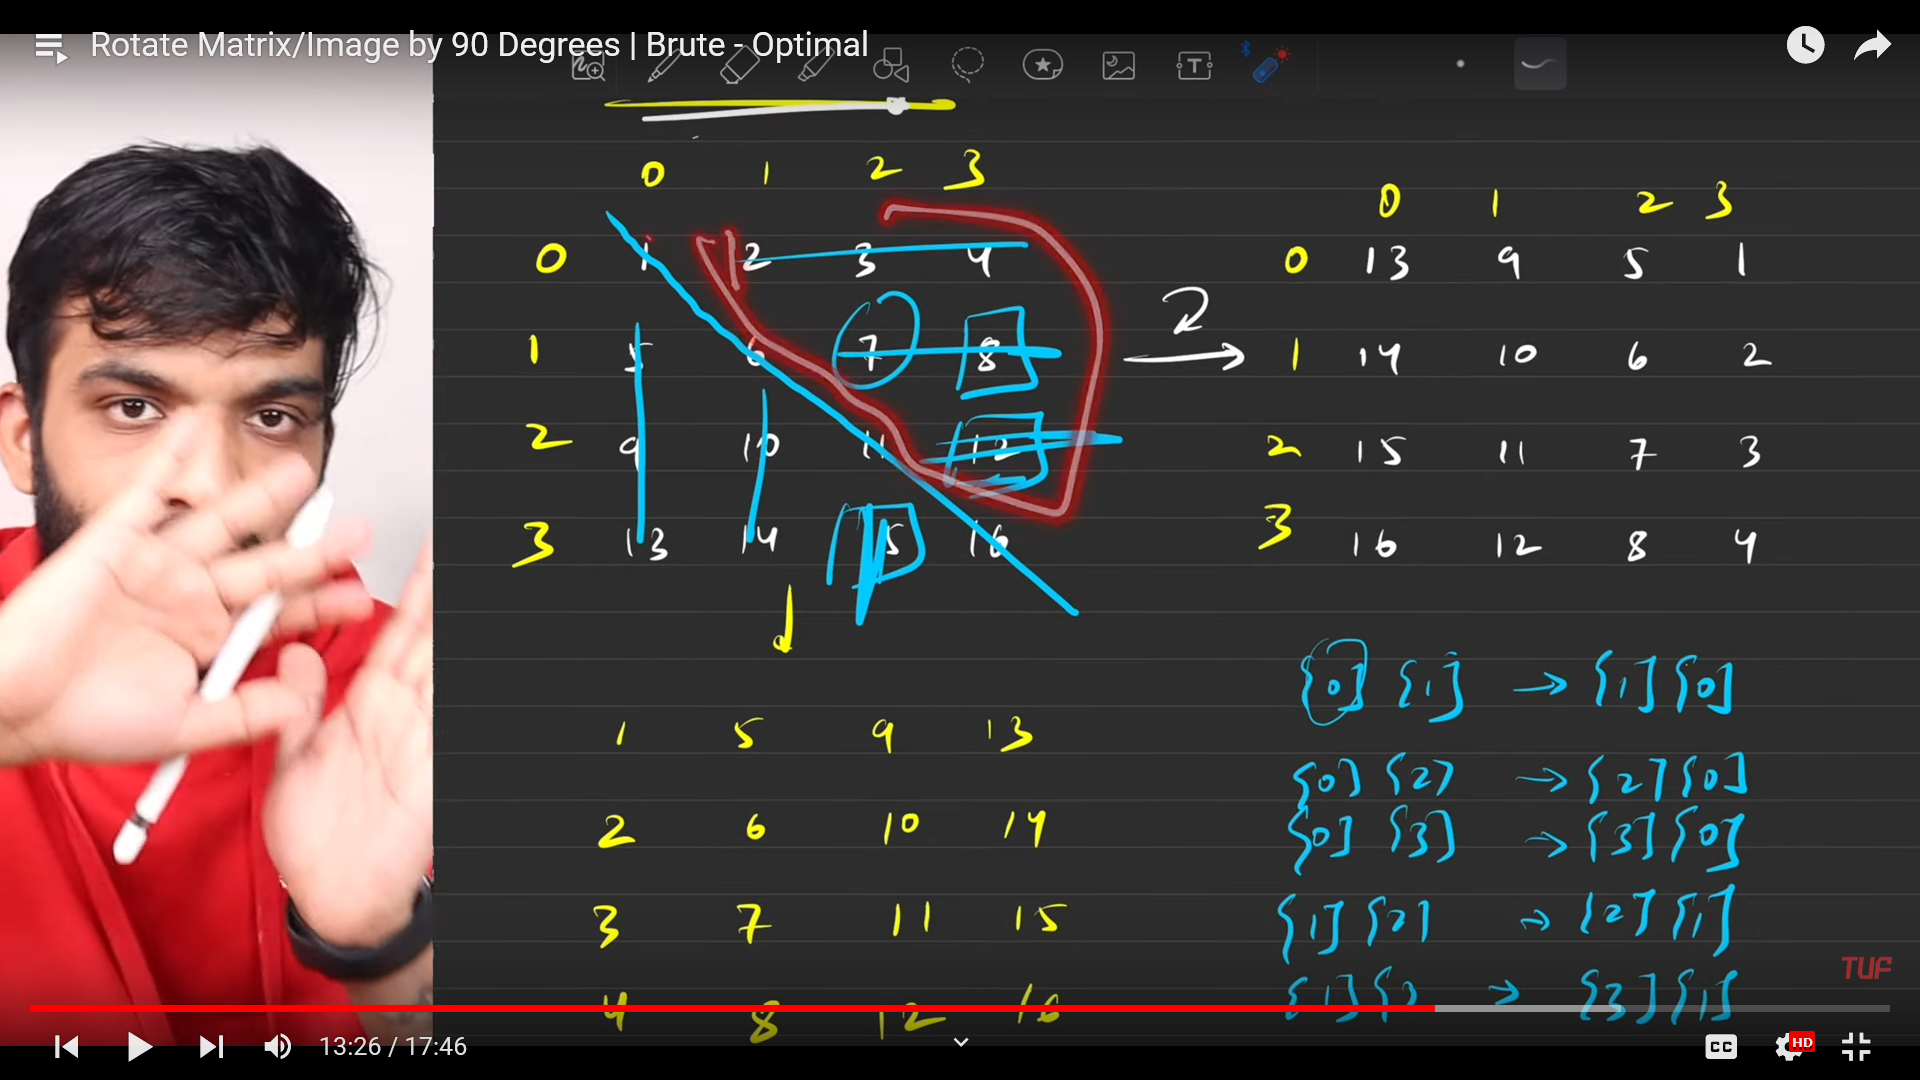 Rotate Matrix/Image by 90 Degrees | Brute - Optimal
0 1 2 3
0 1 2 3 4
1 5 6 7 8
2 9 10 11 12
3 13 14 15 16
0 1 2 3
0 13 9 5 1
1 14 10 6 2
2 15 11 7 3
3 16 12 8 4
1 5 9 13
2 6 10 14
3 7 11 15
4 8 12 16
[0] [1] → [1] [0]
[0] [2] → [2] [0]
[0] [3] → [3] [0]
[1] [2] → [2] [1]
[1] [3 → [3] [1]
TUF
13:26 / 17:46
CC
HD